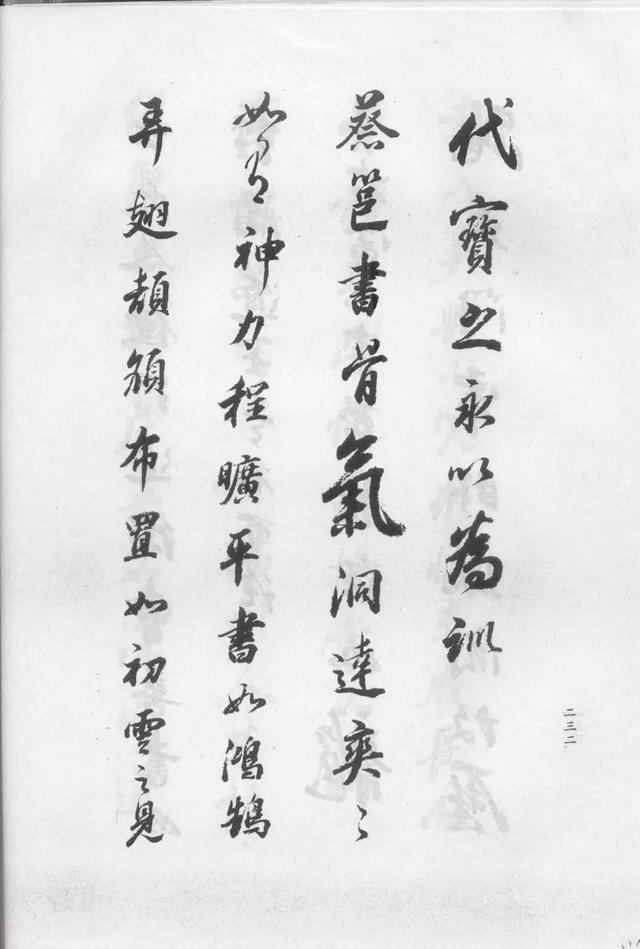 代寶之永以為訓
蔡邕書骨氣洞達爽〻
如有神力程曠平書如鴻鵠
弄翅頡頏布置如初雲之見
二三二